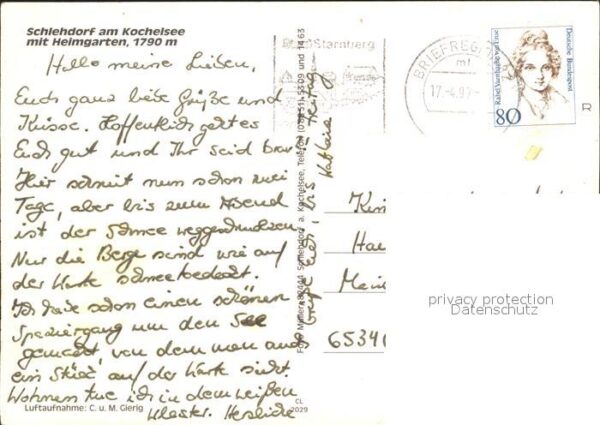 Schlehdorf am Kochelsee
mit Heimgarten, 1790 m
Hallo meine Lieben,
Euch ganz liebe Grüße und
Küsse. Hoffentlich geht es
Euch gut und Ihr seid brav.
Hier schneit nun schon zwei
Tage, aber bis zum Abend
ist der Schnee weggeschmolzen.
Nur die Berge sind wie auf
der Karte schneebedeckt.
Ich habe schon einen schönen
Spaziergang um den See
gemacht, von dem man auch
ein Stück auf der Karte sieht.
Wohnen tue ich in dem weißen
Kloster. Herzliche
Grüße Euch, bis Freitag
Luftaufnahme: C. u. M. Gierig
CL
2029
a. Kochelsee, Telefon
Starnberg
BRIEFREG
17.-4.97
Rahel Varnhagen von Ense
Deutsche Bundespost
80
R
65346
privacy protection
Datenschutz